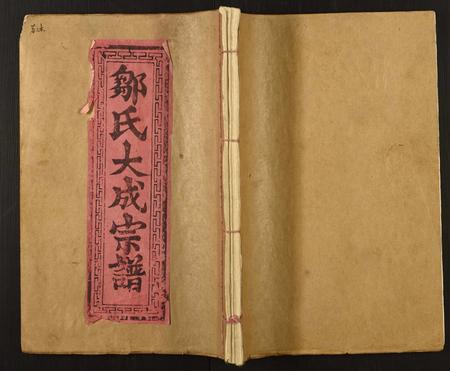 鄒氏大成宗譜